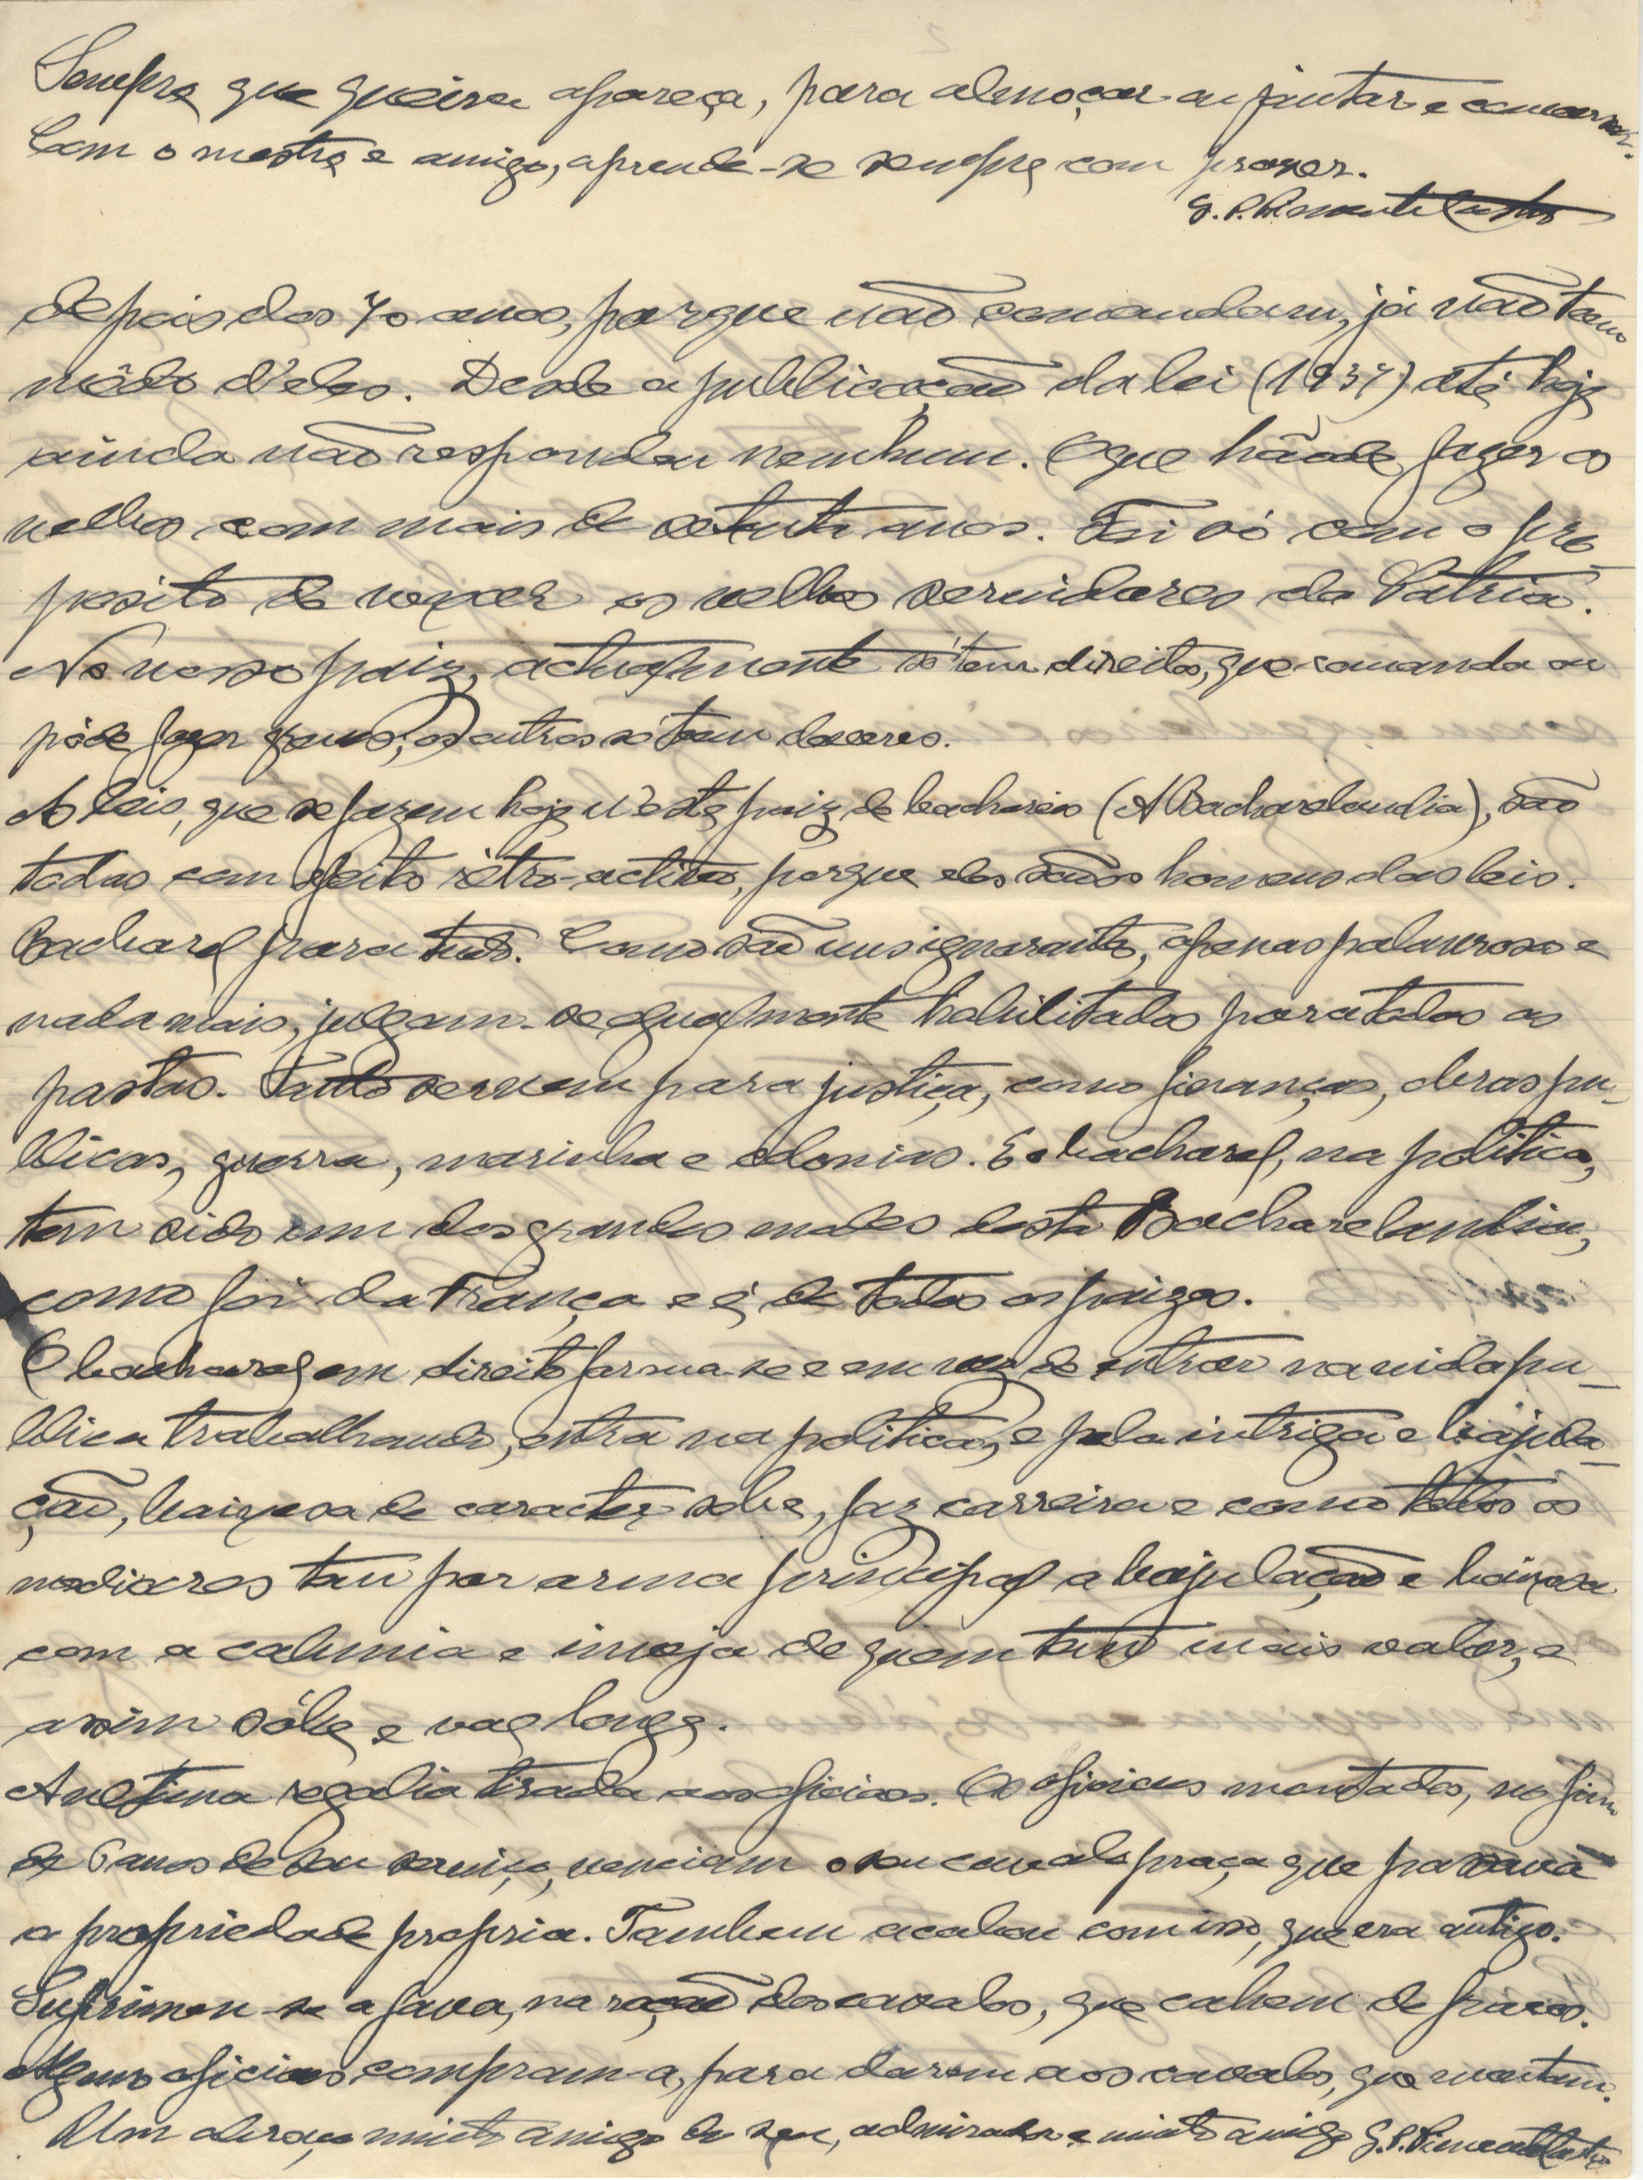 Sempre que queira apareça, para almoçar ou jantar e conversar.
Com o mestre e amigo, aprende-se sempre com prazer.
G. P. Pimenta Castro
depois dos 70 anos, porque não comandam, já não tem
mêdo d'eles. Desde a publicação da lei (1937) até hoje
ainda não respondeu nenhum. O que hãode fazer os
velhos com mais de setenta anos. Foi só com o pro-
posito de vexar os velhos servidores da Patria.
No nosso paiz, actualmente só tem direitos, que comanda ou
póde fazer; os outros só tem deveres.
As leis, que se fazem hoje n'este paiz de bachareis (A Bacharelandia), são
todas com efeito rétro-activo, porque eles são os homens das leis.
Bacharel para tudo. Como são uns ignorantes, apenas palavroso e
nada mais, julgam-se egualmente habilitados para todas as
pastas. Tanto servem para justiça, como finanças, obras pu-
blicas, guerra, marinha e colonias. E o bacharel, na politica,
tem sido um dos grandes males desta Bacharelandia,
como foi da França e é de todos os paizes.
O bacharel em direito forma-se e em vez de entrar na vida pu-
blica trabalhando, entra na politica, e pela intriga e bajula-
ção, baixesa de caracter sobe, faz carreira e como todos os
mediocres tem por arma principal a bajulação e baixesa
com a calunia e inveja de quem tem mais valor, e
assim sóbe e vae longe.
A ultima regalia tirada aos oficiaes. Os oficiaes montados, no fim
de 6 anos de seu serviço, venciam o seu cavalo praça que passava
a propriedade propria. Tambem acabou com isso, que era antigo.
Suprimou-se a fava, na ração dos cavalos, que cahem de fracos.
Alguns oficiaes compram-a, para darem aos cavalos, que montam.
Um abraço muito amigo de seu, admirador e muito amigo G. P. Pimenta Castro